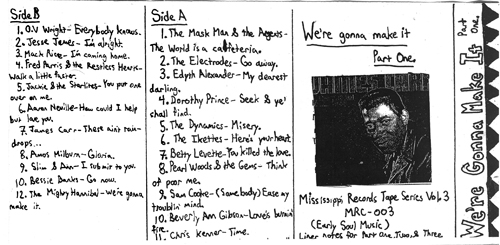 Side B
1. O.V Wright- Everybody knows.
2. Jesse James- I'm alright.
3. Mack Rice- I'm coming home.
4. Fred Parris & the Restless Hearts-
Walk a little faster.
5. Jackie & the Starlites- You put one
over on me.
6. Aaron Neville- How could I help
but love you.
7. James Carr- These ain't rain-
drops...
8. Amos Milburn- Gloria.
9. Slim & Ann- I submit to you.
10. Bessie Banks- Go now.
12. The Mighty Hannibal- We're gonna
make it.
Side A
1. The Mask Man & the Agents-
The World is a cafeteria.
2. The Electrodes- Go away.
3. Edyth Alexander- My dearest
darling.
4. Dorothy Prince- Seek & ye'
shall find.
5. The Dynamics- Misery.
6. The Ikettes- Here's your heart
7. Betty Lavette- You killed the love.
8. Pearl Woods & the Gems- Think
of poor me.
9. Sam Cooke- (Somebody) Ease my
troublin' mind.
10. Beverly Ann Gibson- Love's burnin'
fire.
11. Chris Kenner- Time.
We're gonna make it
Part One.
Mississippi Records Tape Series Vol. 3
MRC-003
(Early Soul Music)
Liner notes for Part One, Two, & Three
We're Gonna Make It
Part One.